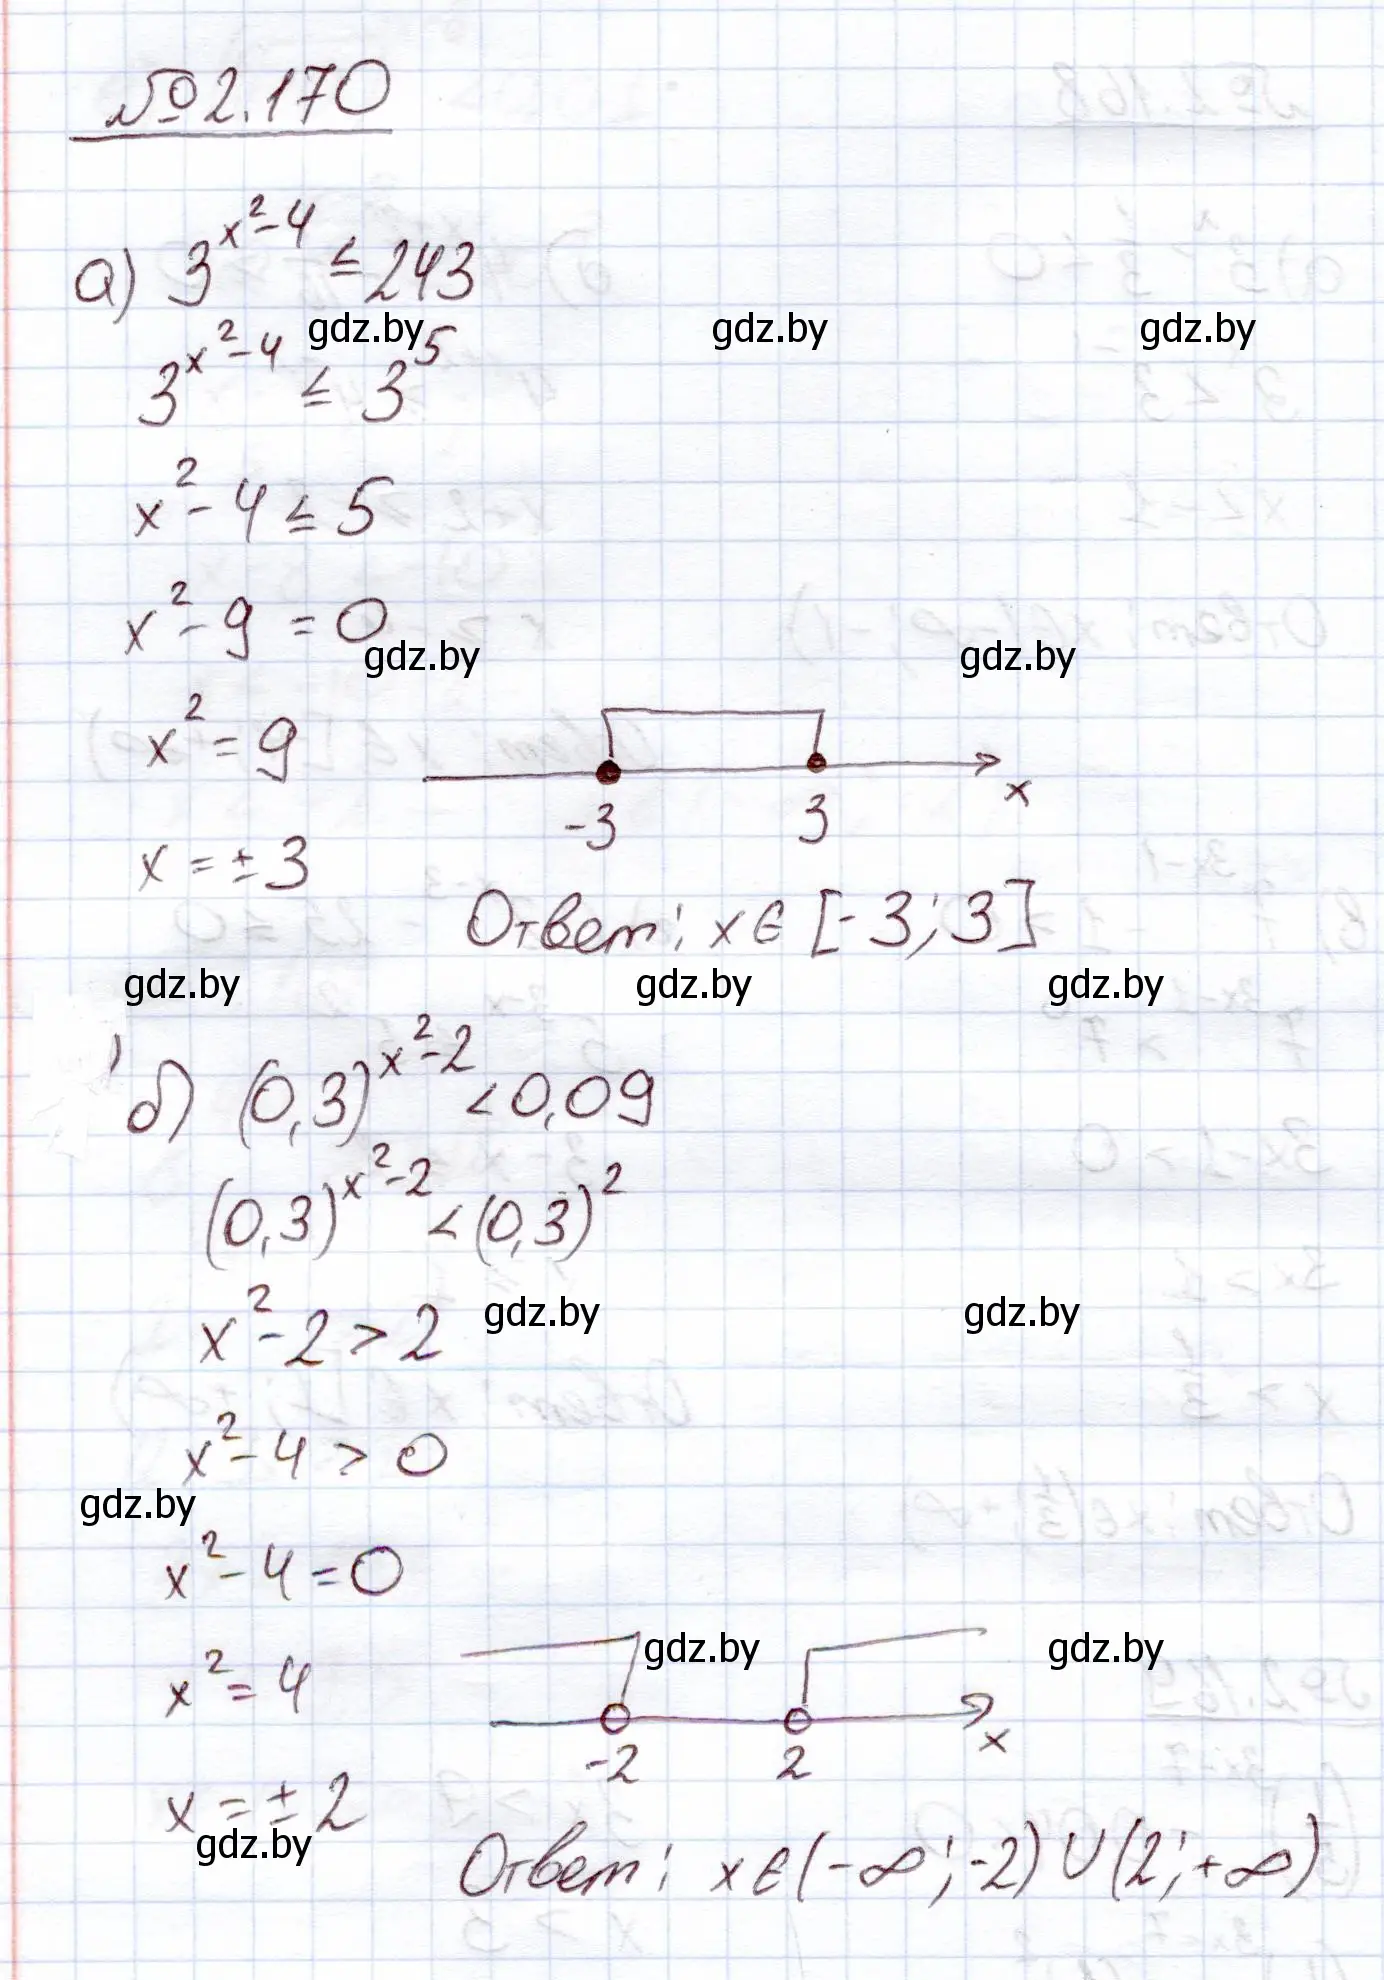 № 2.170
а) 3^(x²-4) ≤ 243
gdz.by gdz.by gdz.by
3^(x²-4) ≤ 3^5
x² - 4 ≤ 5
x² - 9 = 0
gdz.by gdz.by
x² = 9
x
-3 3
x = ± 3
Ответ: x ∈ [-3; 3]
gdz.by gdz.by gdz.by
б) (0,3)^(x²-2) < 0,09
(0,3)^(x²-2) < (0,3)²
x² - 2 > 2
gdz.by gdz.by
x² - 4 > 0
gdz.by
x² - 4 = 0
gdz.by gdz.by
x² = 4
x
-2 2
x = ± 2
gdz.by
Ответ: x ∈ (-∞; -2) ∪ (2; +∞)